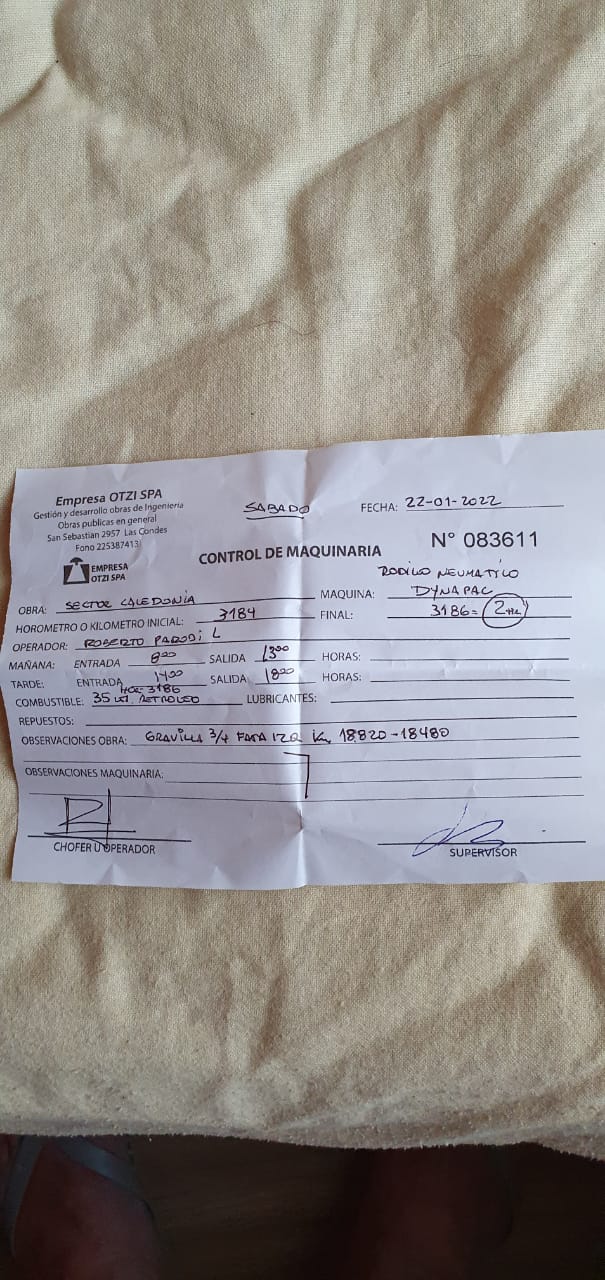 Empresa OTZI SPA
Gestión y desarrollo obras de Ingeniería
Obras publicas en general
San Sebastian 2957 Las Condes
Fono 225387413
EMPRESA
OTZI SPA
SABADO
FECHA: 22-01-2022
CONTROL DE MAQUINARIA
N° 083611
RODILLO NEUMATICO
OBRA: SECTOR CALEDONIA
MAQUINA: DYNAPAC
HOROMETRO O KILOMETRO INICIAL: 3184
FINAL: 3186 = 2
OPERADOR: ROBERTO PARODI L
MAÑANA: ENTRADA 8 00 SALIDA 13 00 HORAS:
TARDE: ENTRADA 14 00 SALIDA 18 00 HORAS:
3186
COMBUSTIBLE: 35 PETROLEO LUBRICANTES:
REPUESTOS:
OBSERVACIONES OBRA: GRAVILLA 3/4 IZQ Km 18.820 - 18480
OBSERVACIONES MAQUINARIA:
CHOFER U OPERADOR
SUPERVISOR